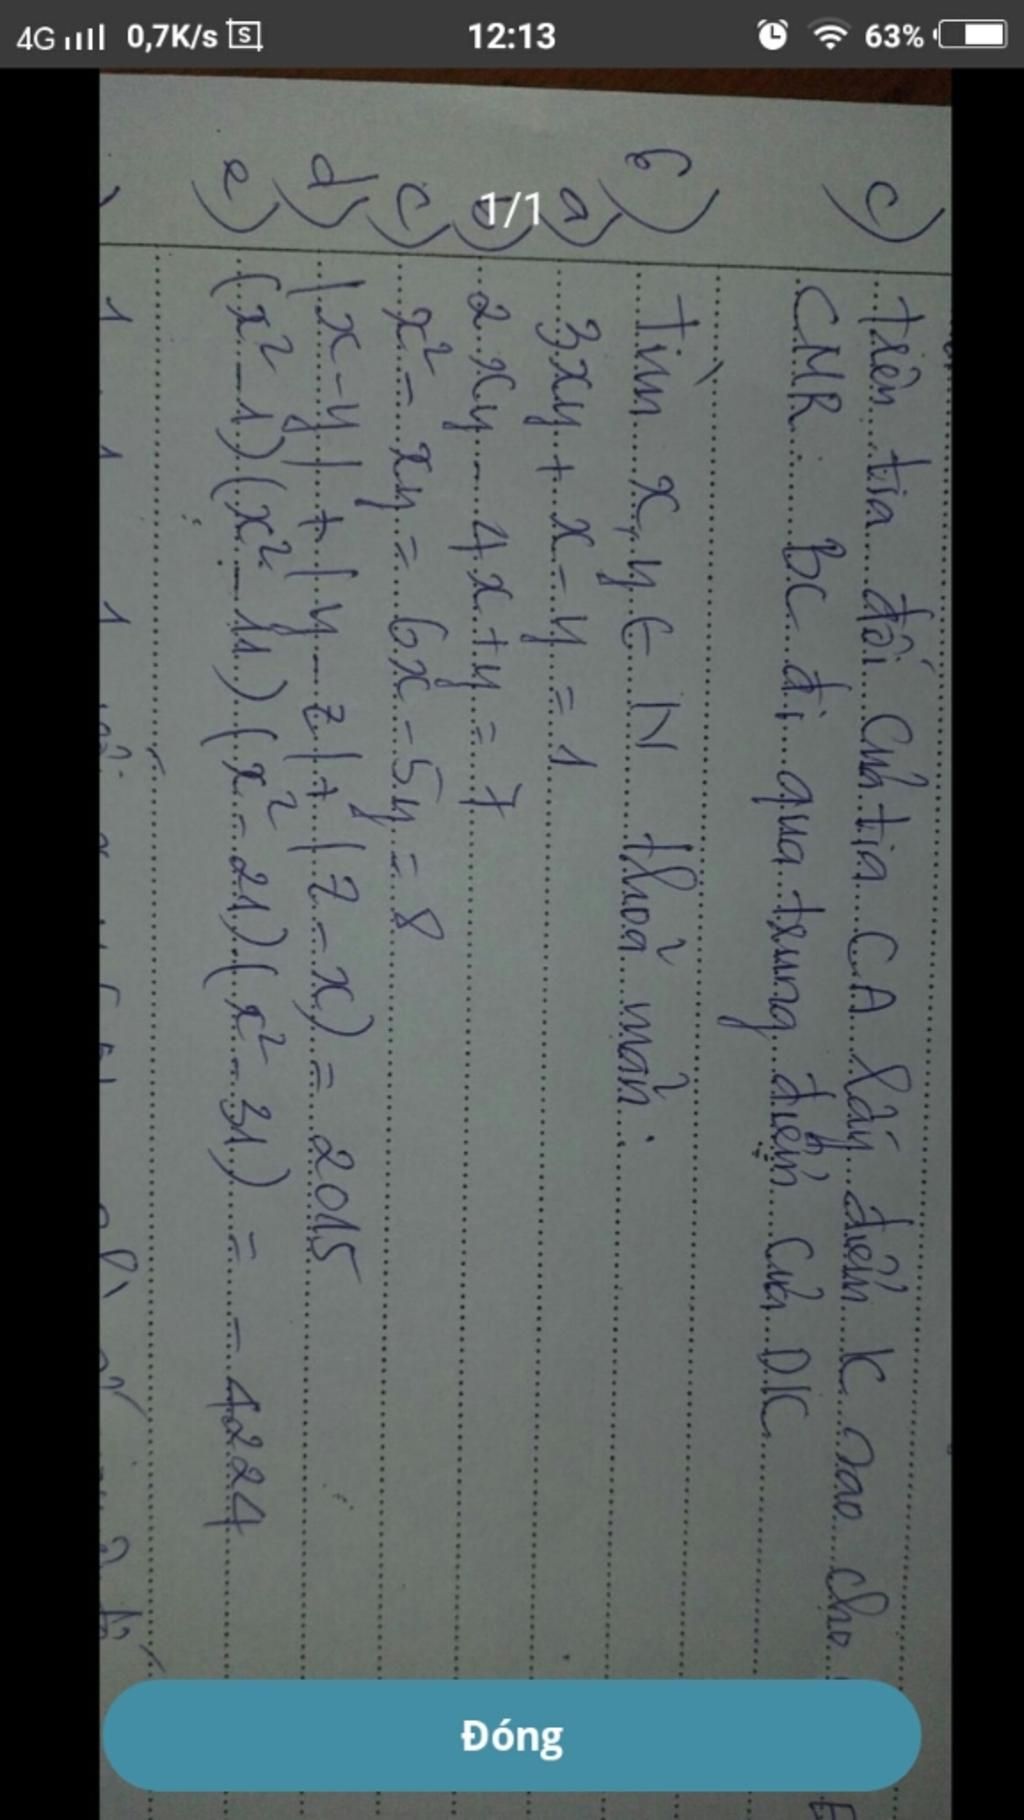 4G 0,7K/s 12:13 63%
1/1
c) trên tia đối của tia CA lấy điểm K sao cho
CMR: BC đi qua trung điểm của DK
6) tìm x, y ∈ N thoả mãn:
a) 3xy + x - y = 1
2xy - 4x + y = 7
c) x² - xy = 6x - 5y = 8
d) |x-y| + |y-z| + |z-x| = 2015
e) (x² - 1)(x² - 11)(x² - 21)(x² - 31) = -4224
Đóng